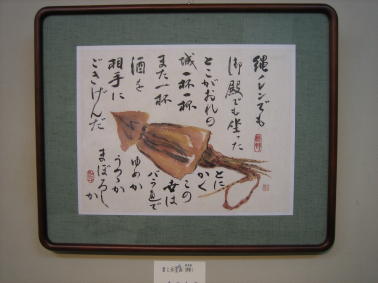 縄ノレンでも
御殿でも坐った
とこがおれの
城一杯一杯
また一杯
酒を
相手に
ごきげんだ
とに
かく
この
世は
バラ色で
ゆめか
うつゝか
まぼろし
か